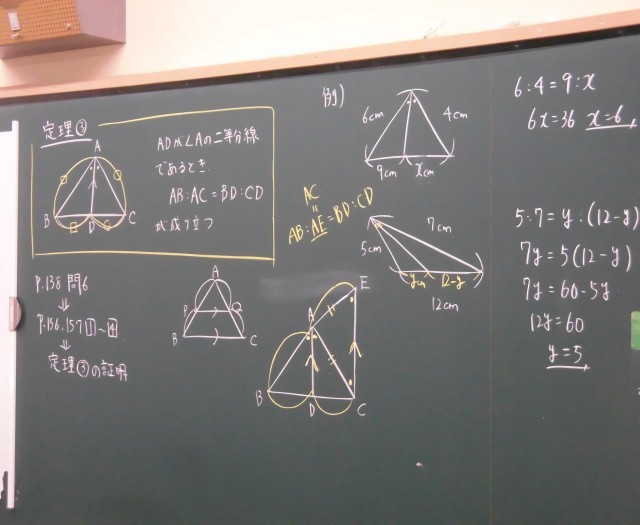 定理③
A
B
D
C
ADが∠Aの二等分線
であるとき、
AB:AC=BD:CD
が成り立つ
P.138 問6
⇓
P.156.157 1~4
⇓
定理③の証明
A
P
Q
B
C
例)
6cm
4cm
9cm
xcm
AC
"
AB:AE=BD:CD
7cm
5cm
ycm
12-y
12cm
E
A
B
D
C
6:4=9:x
6x=36 x=6
5:7=y:(12-y)
7y=5(12-y)
7y=60-5y
12y=60
y=5